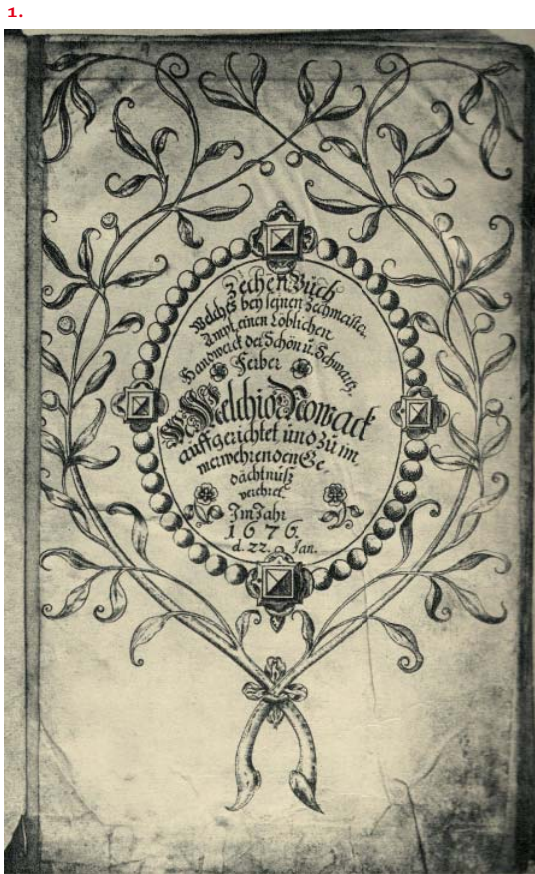 1.
Zechen Buch
Welches bey seinen Zechmeister
Ampt einen Löblichen
Handwerck der Schön u. Schwartz
Ferber
Melchior Nowack
auffgerichtet und zu im
merwehrenden Ge
dächtnüß
verehret.
Im Jahr
1676.
d. 22. Jan.